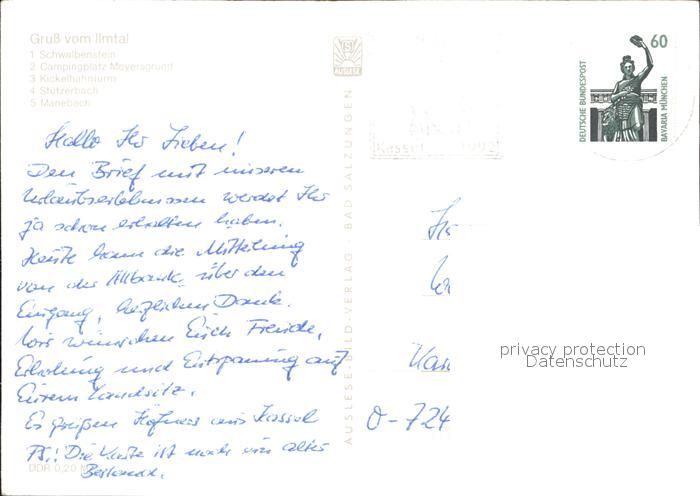 Gruß vom Ilmtal
1 Schwalbenstein
2 Campingplatz Meyersgrund
3 Kickelhahnturm
4 Stützerbach
5 Manebach
Hallo Ihr Lieben!
Den Brief mit unseren
Urlaubserlebnissen werdet Ihr
ja schon erhalten haben.
Heute kam die Mitteilung
von der Allbank über den
Eingang, herzlichen Dank.
Wir wünschen Euch Freude,
Erholung und Entspannung auf
Eurem Landsitz.
Es grüßen Höfners aus Kassel
PS.! Die Karte ist noch ein alter
Bestand.
DDR 0,20 M
AUSLESE
AUSLESE-BILD-VERLAG · BAD SALZUNGEN
Kassel 1992
60
DEUTSCHE BUNDESPOST
BAVARIA MÜNCHEN
O-724
privacy protection
Datenschutz